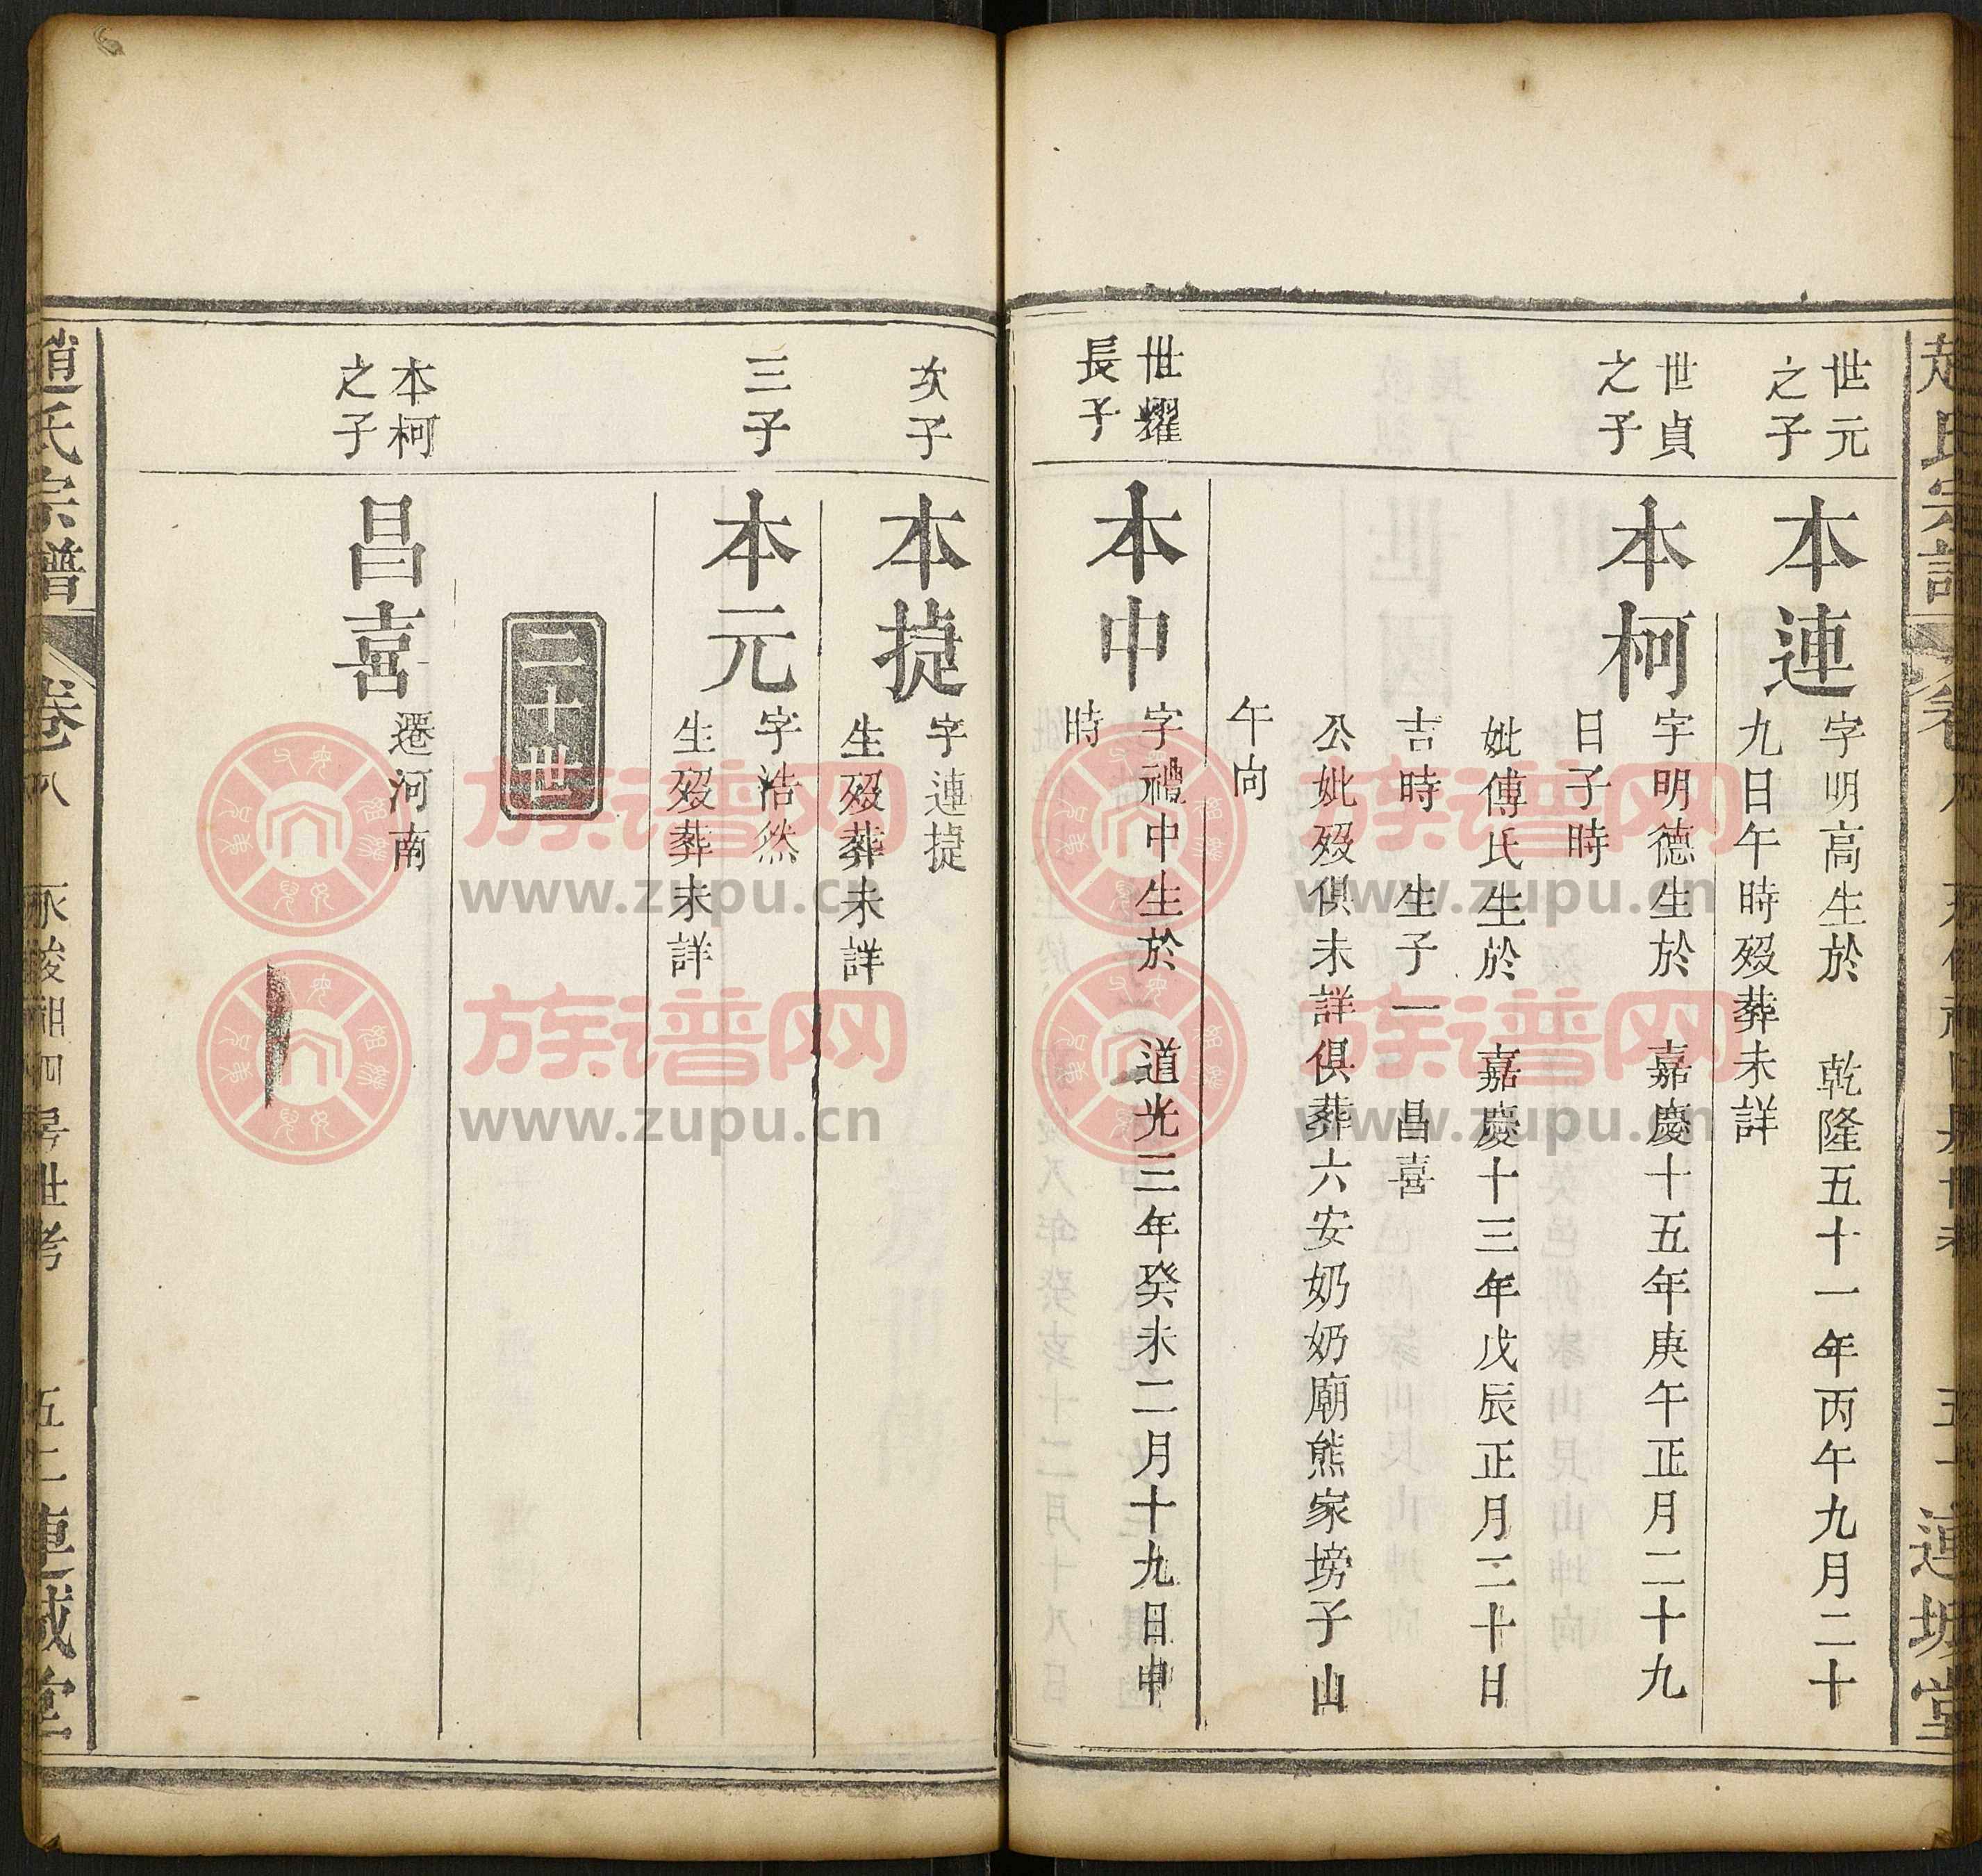 世元
之子
本連
字明高生於 乾隆五十一年丙午九月二十
九日午時歿葬未詳
世貞
之子
本柯
字明德生於 嘉慶十五年庚午正月二十九
日子時
妣傅氏生於 嘉慶十三年戊辰正月二十日
吉時 生子一 昌喜
公妣歿俱未詳俱葬六安奶奶廟熊家塝子山
午向
世耀
長子
本中
字禮中生於 道光三年癸未二月十九日申
時
次子
本捷
字連捷
生歿葬未詳
三子
本元
字浩然
生歿葬未詳
二十世
本柯
之子
昌喜
遷河南
趙氏宗譜
卷八
五十二
連城堂
族谱网
www.zupu.cn
族谱网
www.zupu.cn
族谱网
www.zupu.cn
族谱网
www.zupu.cn